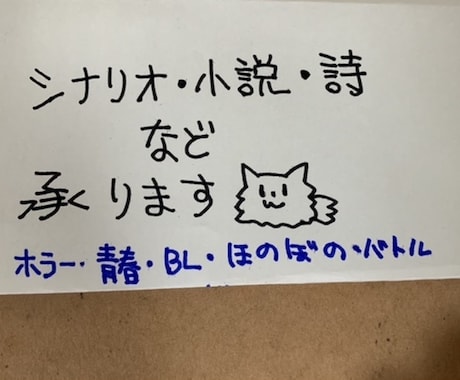 シナリオ・小説・詩
など
承くります
ホラー・青春・BL・ほのぼの・バトル